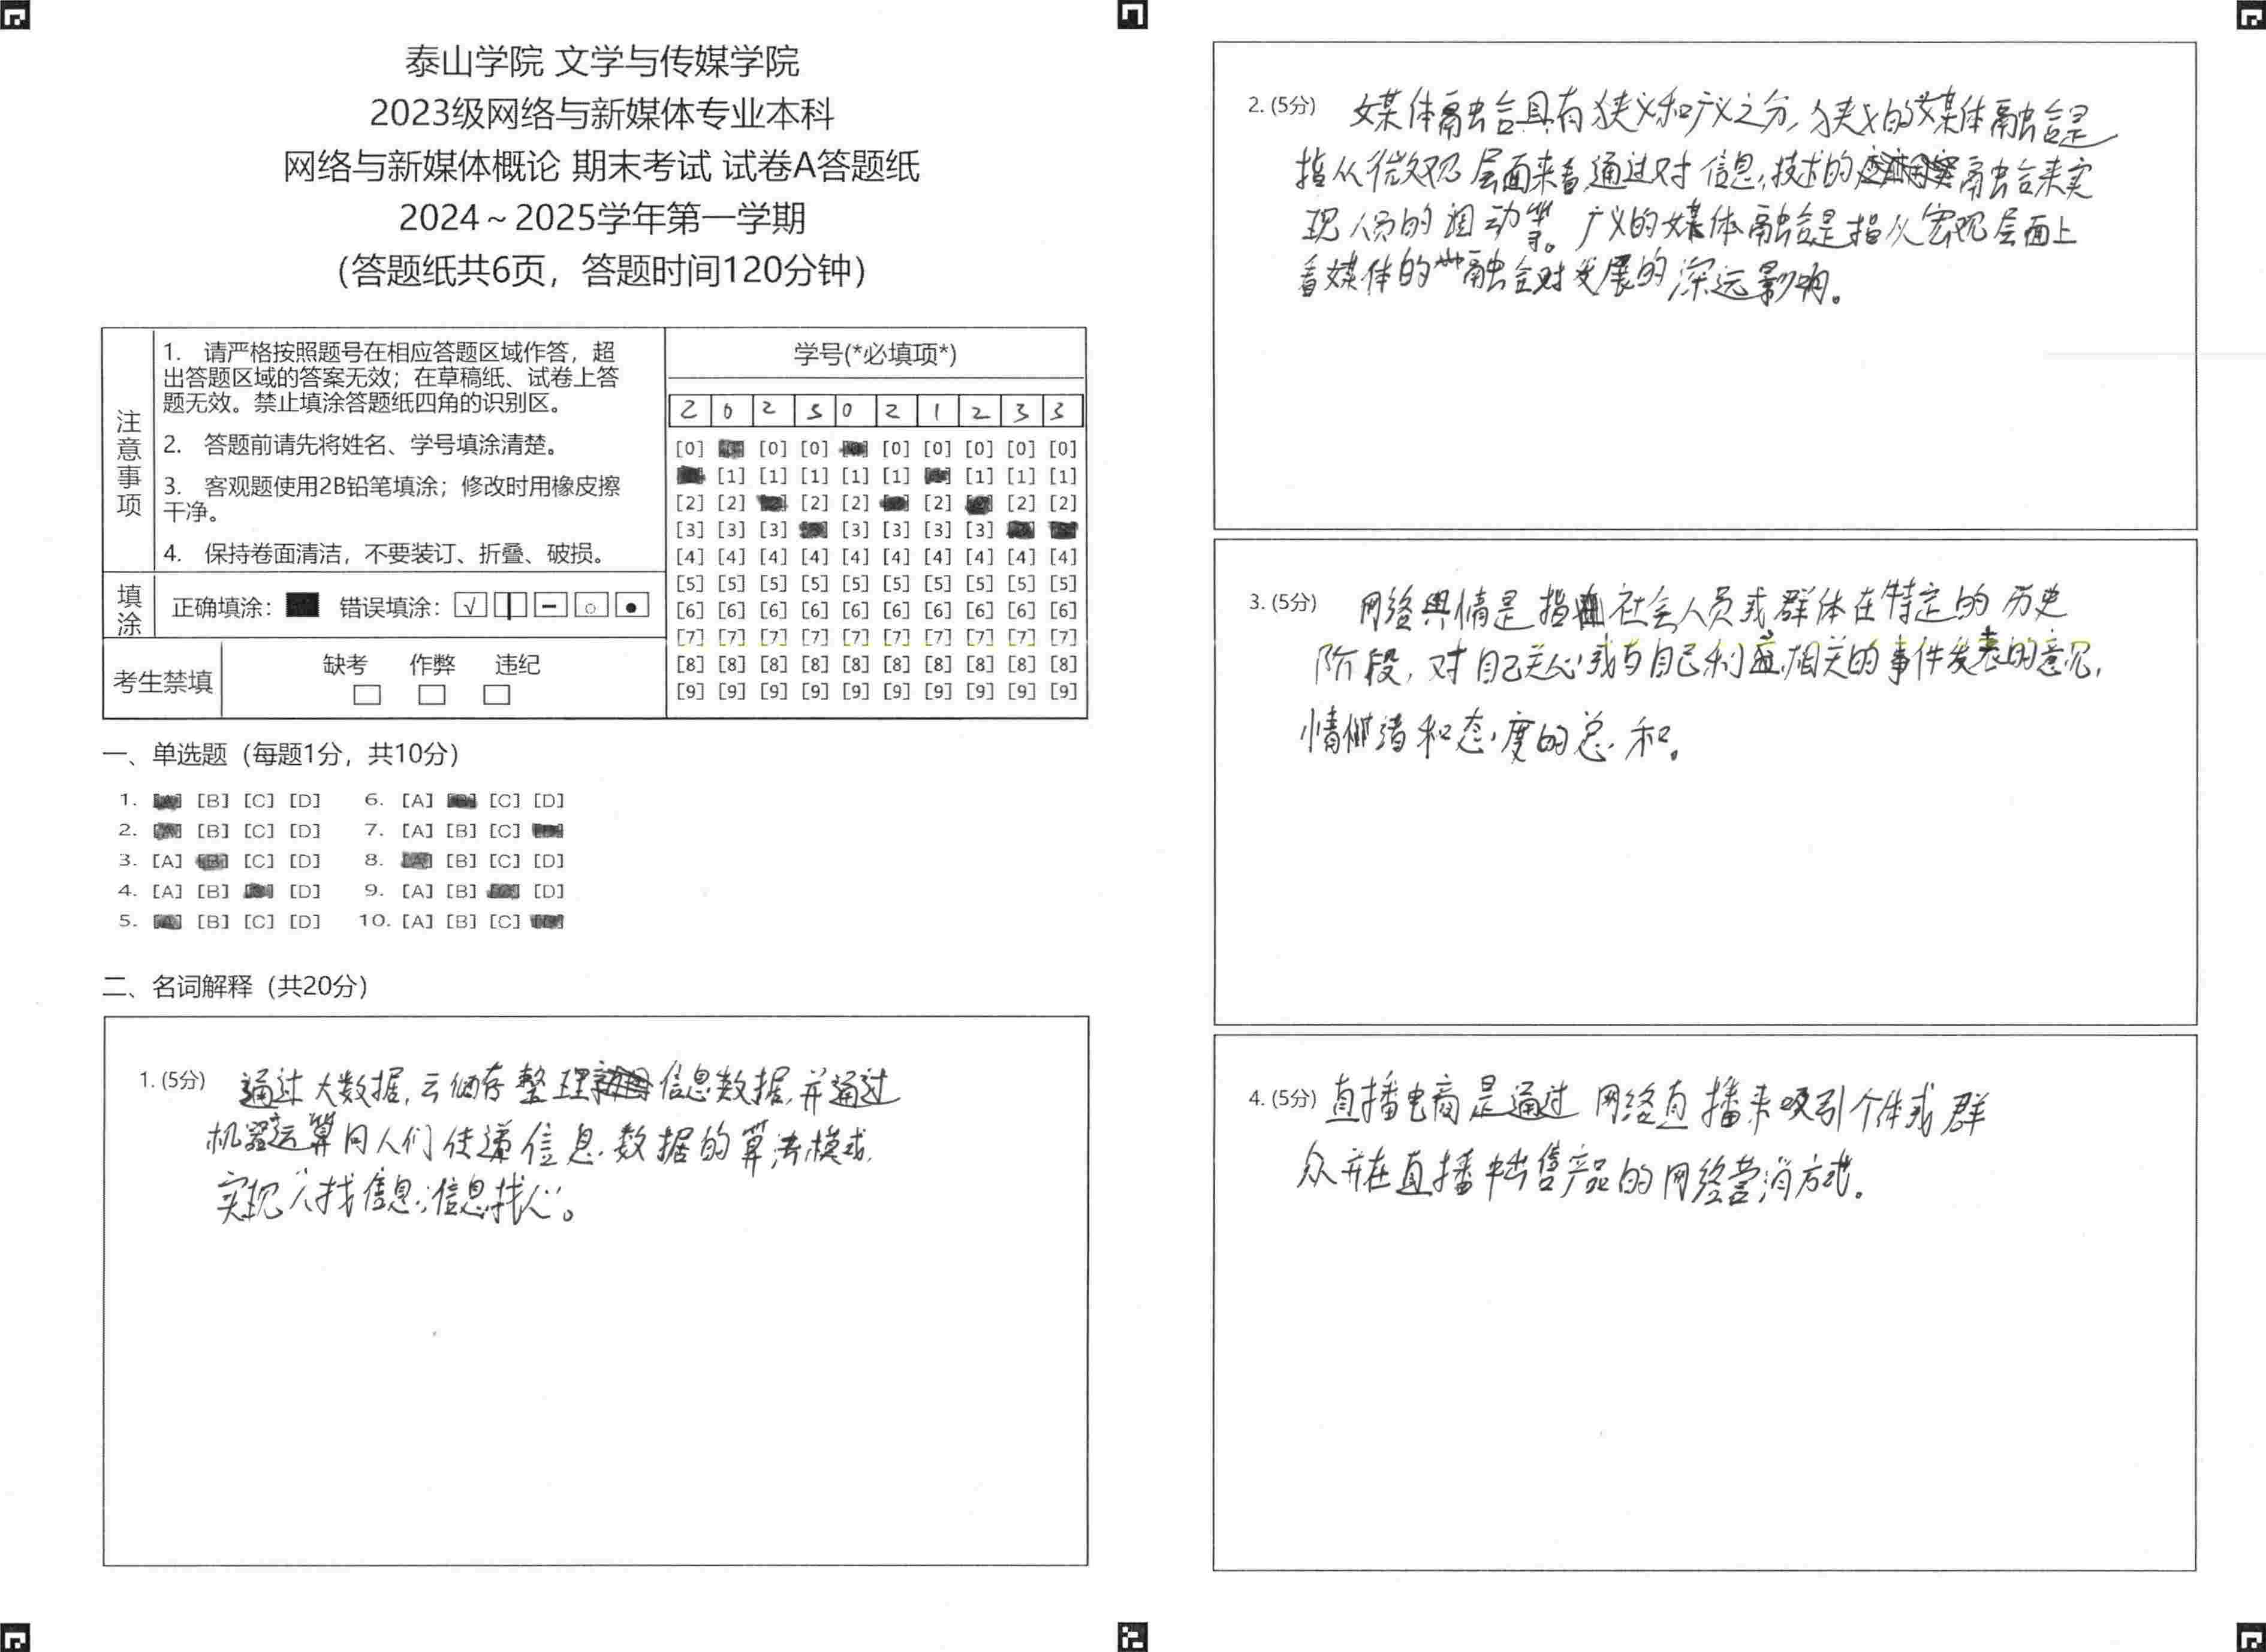 泰山学院 文学与传媒学院
2023级网络与新媒体专业本科
网络与新媒体概论 期末考试 试卷A答题纸
2024～2025学年第一学期
（答题纸共6页，答题时间120分钟）
注意事项
1. 请严格按照题号在相应答题区域作答，超
出答题区域的答案无效；在草稿纸、试卷上答
题无效。禁止填涂答题纸四角的识别区。
2. 答题前请先将姓名、学号填涂清楚。
3. 客观题使用2B铅笔填涂；修改时用橡皮擦
干净。
4. 保持卷面清洁，不要装订、折叠、破损。
填涂 正确填涂： 错误填涂：
考生禁填 缺考 作弊 违纪
学号(*必填项*)
2 0 2 3 0 2 1 2 3 3
[0] [0] [0] [0] [0] [0] [0] [0]
[1] [1] [1] [1] [1] [1] [1] [1]
[2] [2] [2] [2] [2] [2] [2]
[3] [3] [3] [3] [3] [3] [3]
[4] [4] [4] [4] [4] [4] [4] [4] [4] [4]
[5] [5] [5] [5] [5] [5] [5] [5] [5] [5]
[6] [6] [6] [6] [6] [6] [6] [6] [6] [6]
[7] [7] [7] [7] [7] [7] [7] [7] [7] [7]
[8] [8] [8] [8] [8] [8] [8] [8] [8] [8]
[9] [9] [9] [9] [9] [9] [9] [9] [9] [9]
一、单选题（每题1分，共10分）
1. [A] [B] [C] [D] 6. [A] [B] [C] [D]
2. [A] [B] [C] [D] 7. [A] [B] [C]
3. [A] [B] [C] [D] 8. [A] [B] [C] [D]
4. [A] [B] [D] 9. [A] [B] [D]
5. [A] [B] [C] [D] 10. [A] [B] [C]
二、名词解释（共20分）
1. (5分) 通过大数据,云储存整理信息数据,并通过
机器运算向人们传递信息数据的算法模式,
实现“人找信息,信息找人”。
2. (5分) 媒体融合具有狭义和广义之分,狭义的媒体融合是
指从微观层面来看,通过对信息,技术的融合来实
现人员的 动等。广义的媒体融合是指从宏观层面上
看媒体的融合对发展的深远影响。
3. (5分) 网络舆情是指社会人员或群体在特定的历史
阶段,对自己关心或与自己利益相关的事件发表的意见,
情绪和态度的总和。
4. (5分) 直播电商是通过网络直播来吸引个体或群
众并在直播中出售产品的网络营消方式。